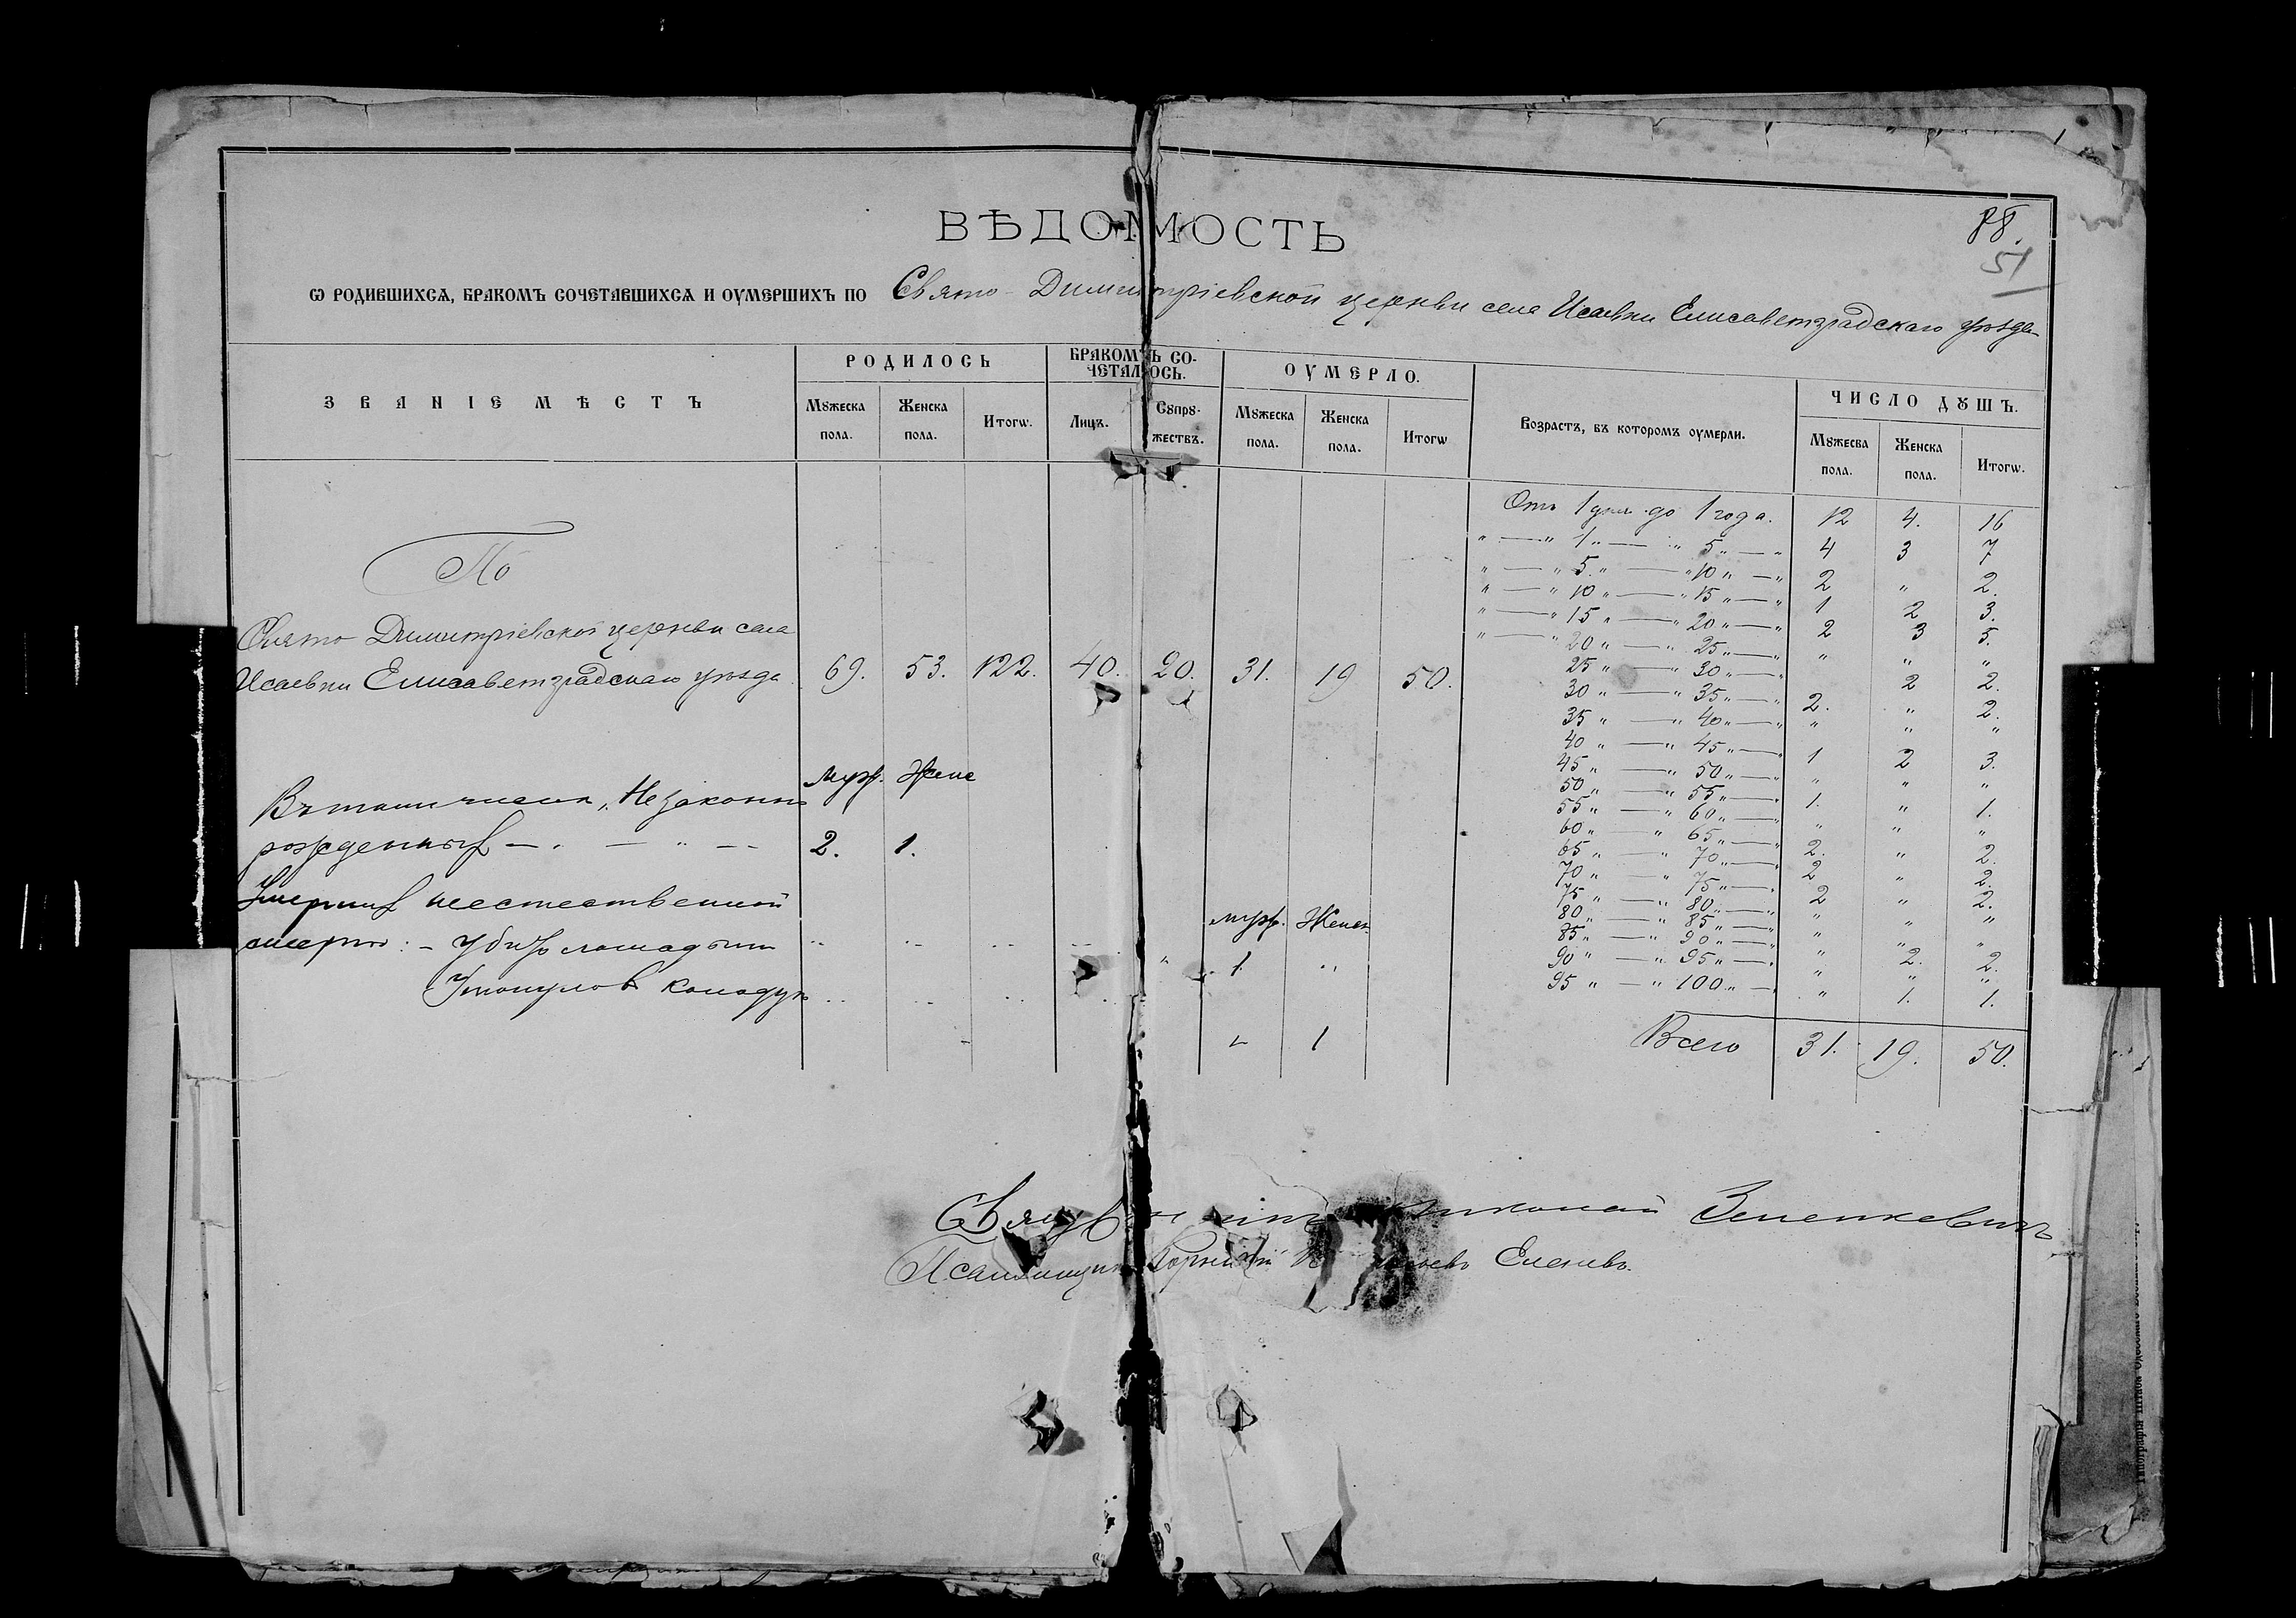 ВѢДОМОСТЬ
88.
51
Ѡ РОДИВШИХСѦ, БРАКОМЪ СОЧЕТАВШИХСѦ И ОУМЕРШИХЪ ПО Свято-Димитріевской церкви села Исаевки Елисаветградскаго уѣзда
ЗВАНІЕ МѢСТЪ
РОДИЛОСЬ
Мꙋжеска пола.
Женска пола.
Итогѡ.
БРАКОМЪ СО-
ЧЕТАЛОСЬ.
Лицъ.
Сꙋпрꙋ-
жествъ.
ОУМЕРЛО.
Мꙋжеска пола.
Женска пола.
Итогѡ
Возрастъ, въ которомъ оумерли.
ЧИСЛО ДꙊШЪ.
Мꙋжесва пола.
Женска пола.
Итогѡ.
По
Свято Димитріевской церкви села
Исаевки Елисаветградскаго уѣзда 69. 53. 122. 40. 20. 31. 19 50.
муж. Жене
Въ томъ числѣ „Незаконно
рожденныхъ — „ — „ — 2. 1.
Умершихъ неестественной
муж. Женск.
смертію: – Убитъ лошадьми 1. „
Утонула въ колодцѣ „ 1
Отъ 1 дня до 1 года. 12 4. 16
„ — „ 1 „ — „ 5 „ — „ 4 3 7
„ — „ 5 „ — „ 10 „ — „ 2 „ 2.
„ — „ 10 „ — „ 15 „ — „ 1 2 3.
„ — „ 15 „ — „ 20 „ — „ 2 3 5.
„ — „ 20 „ — „ 25 „ — „ „ „ „
25 „ — „ 30 „ — „ 2 2.
30 „ — „ 35 „ — „ 2. „ 2.
35 „ — „ 40 „ — „ „ „ „
40 „ — „ 45 „ — „ 1 2 3.
45 „ — „ 50 „ — „ „ „ „
50 „ — „ 55 „ — „ 1. „ 1.
55 „ — „ 60 „ — „ „ „ „
60 „ — „ 65 „ — „ 2. „ 2.
65 „ — „ 70 „ — „ 2 „ 2.
70 „ — „ 75 „ — „ 2 „ 2.
75 „ — „ 80 „ — „ „ „ „
80 „ — „ 85 „ — „ „ „ „
85 „ — „ 90 „ — „ „ 2. 2.
90 „ — „ 95 „ — „ „ „ „
95 „ — „ 100 „ — „ „ 1. 1.
Всего 31. 19. 50.
Николай Зеленкевичъ
Псаломщикъ